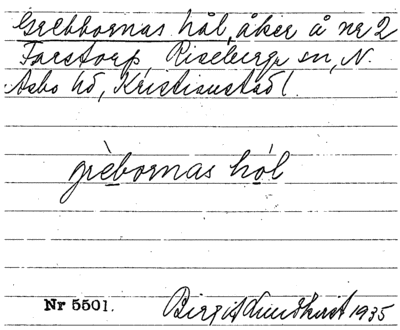 Grebbornas hål, åker å nr 2
Farstorp, Riseberga sn, N.
Asbo hd, Kristianstad l.
grèbornas hól
Nr 5501.
Birgit Lundkvist 1935